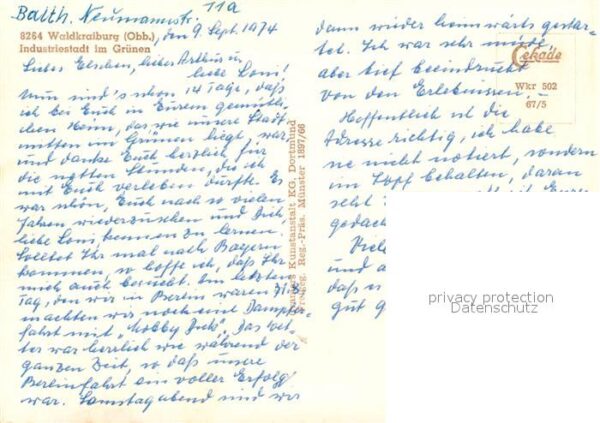 Balth. Neumannstr. 11a
8264 Waldkraiburg (Obb.), den 9. Sept. 1974
Industriestadt im Grünen
Liebes Elschen, lieber Arthur u.
liebe Loni!
Nun sind's schon 14 Tage, daß
ich bei Euch in Eurem gemütli-
chen Heim, das wie unsere Stadt
mitten im Grünen liegt, war
und danke Euch herzlich für
die netten Stunden, die ich
mit Euch verleben durfte. Es
war schön, Euch nach so vielen
Jahren wiederzusehen und Dich
liebe Loni kennen zu lernen.
Solltet Ihr mal nach Bayern
kommen, so hoffe ich, daß Ihr
mich auch besucht. Am letzten
Tag, den wir in Berlin waren 31.8.
machten wir noch eine Dampfer-
fahrt mit „Mobby Dick". Das Wet-
ter war herrlich wie während der
ganzen Zeit, so daß unsere
Berlinfahrt ein voller Erfolg
war. Samstag abend sind wir
Kunstanstalt KG, Dortmund
Freigeg. Reg.-Präs. Münster 1897/66
dann wieder heimwärts gestar-
tet. Ich war sehr müde,
aber tief beeindruckt
von den Erlebnissen.
Hoffentlich ist die
Adresse richtig, ich habe
sie nicht notiert, sondern
im Kopf behalten, daran
seht
gedach
Viele
und a
daß es
gut g
Cekade
Wkr 502
67/5
privacy protection
Datenschutz